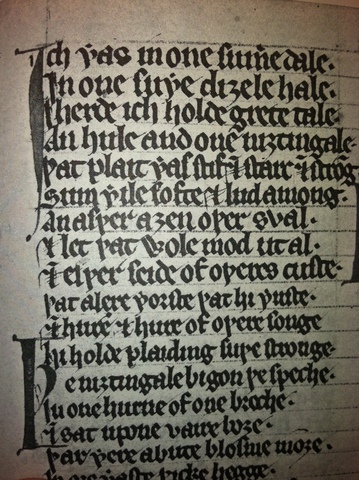 Ich ƿas in one sum̄e dale.
In one suþe diȝele hale.
Iherde ich holde grete tale.
An hule and one niȝtingale.
Þat plait ƿas stif ⁊ starc ⁊ strōg.
Sum ƿile softe ⁊ lud among.
An asþer aȝen oþer sval.
⁊ let þat wole mod ut al.
⁊ eiþer seide of oþeres custe.
Þat alere ƿorste þat hi ƿuste.
⁊ hure ⁊ hure of oþere songe
Hi holde plaiding suþe stronge.
Þe niȝtingale bigon þe speche.
In one hurne of one breche.
⁊ sat upone vaire boȝe.
Þar ƿere abute blosme inoȝe.
In ore vaste þicke hegge.